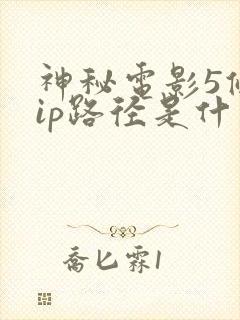 神秘电影5
ip路径是什
乔匕霖1